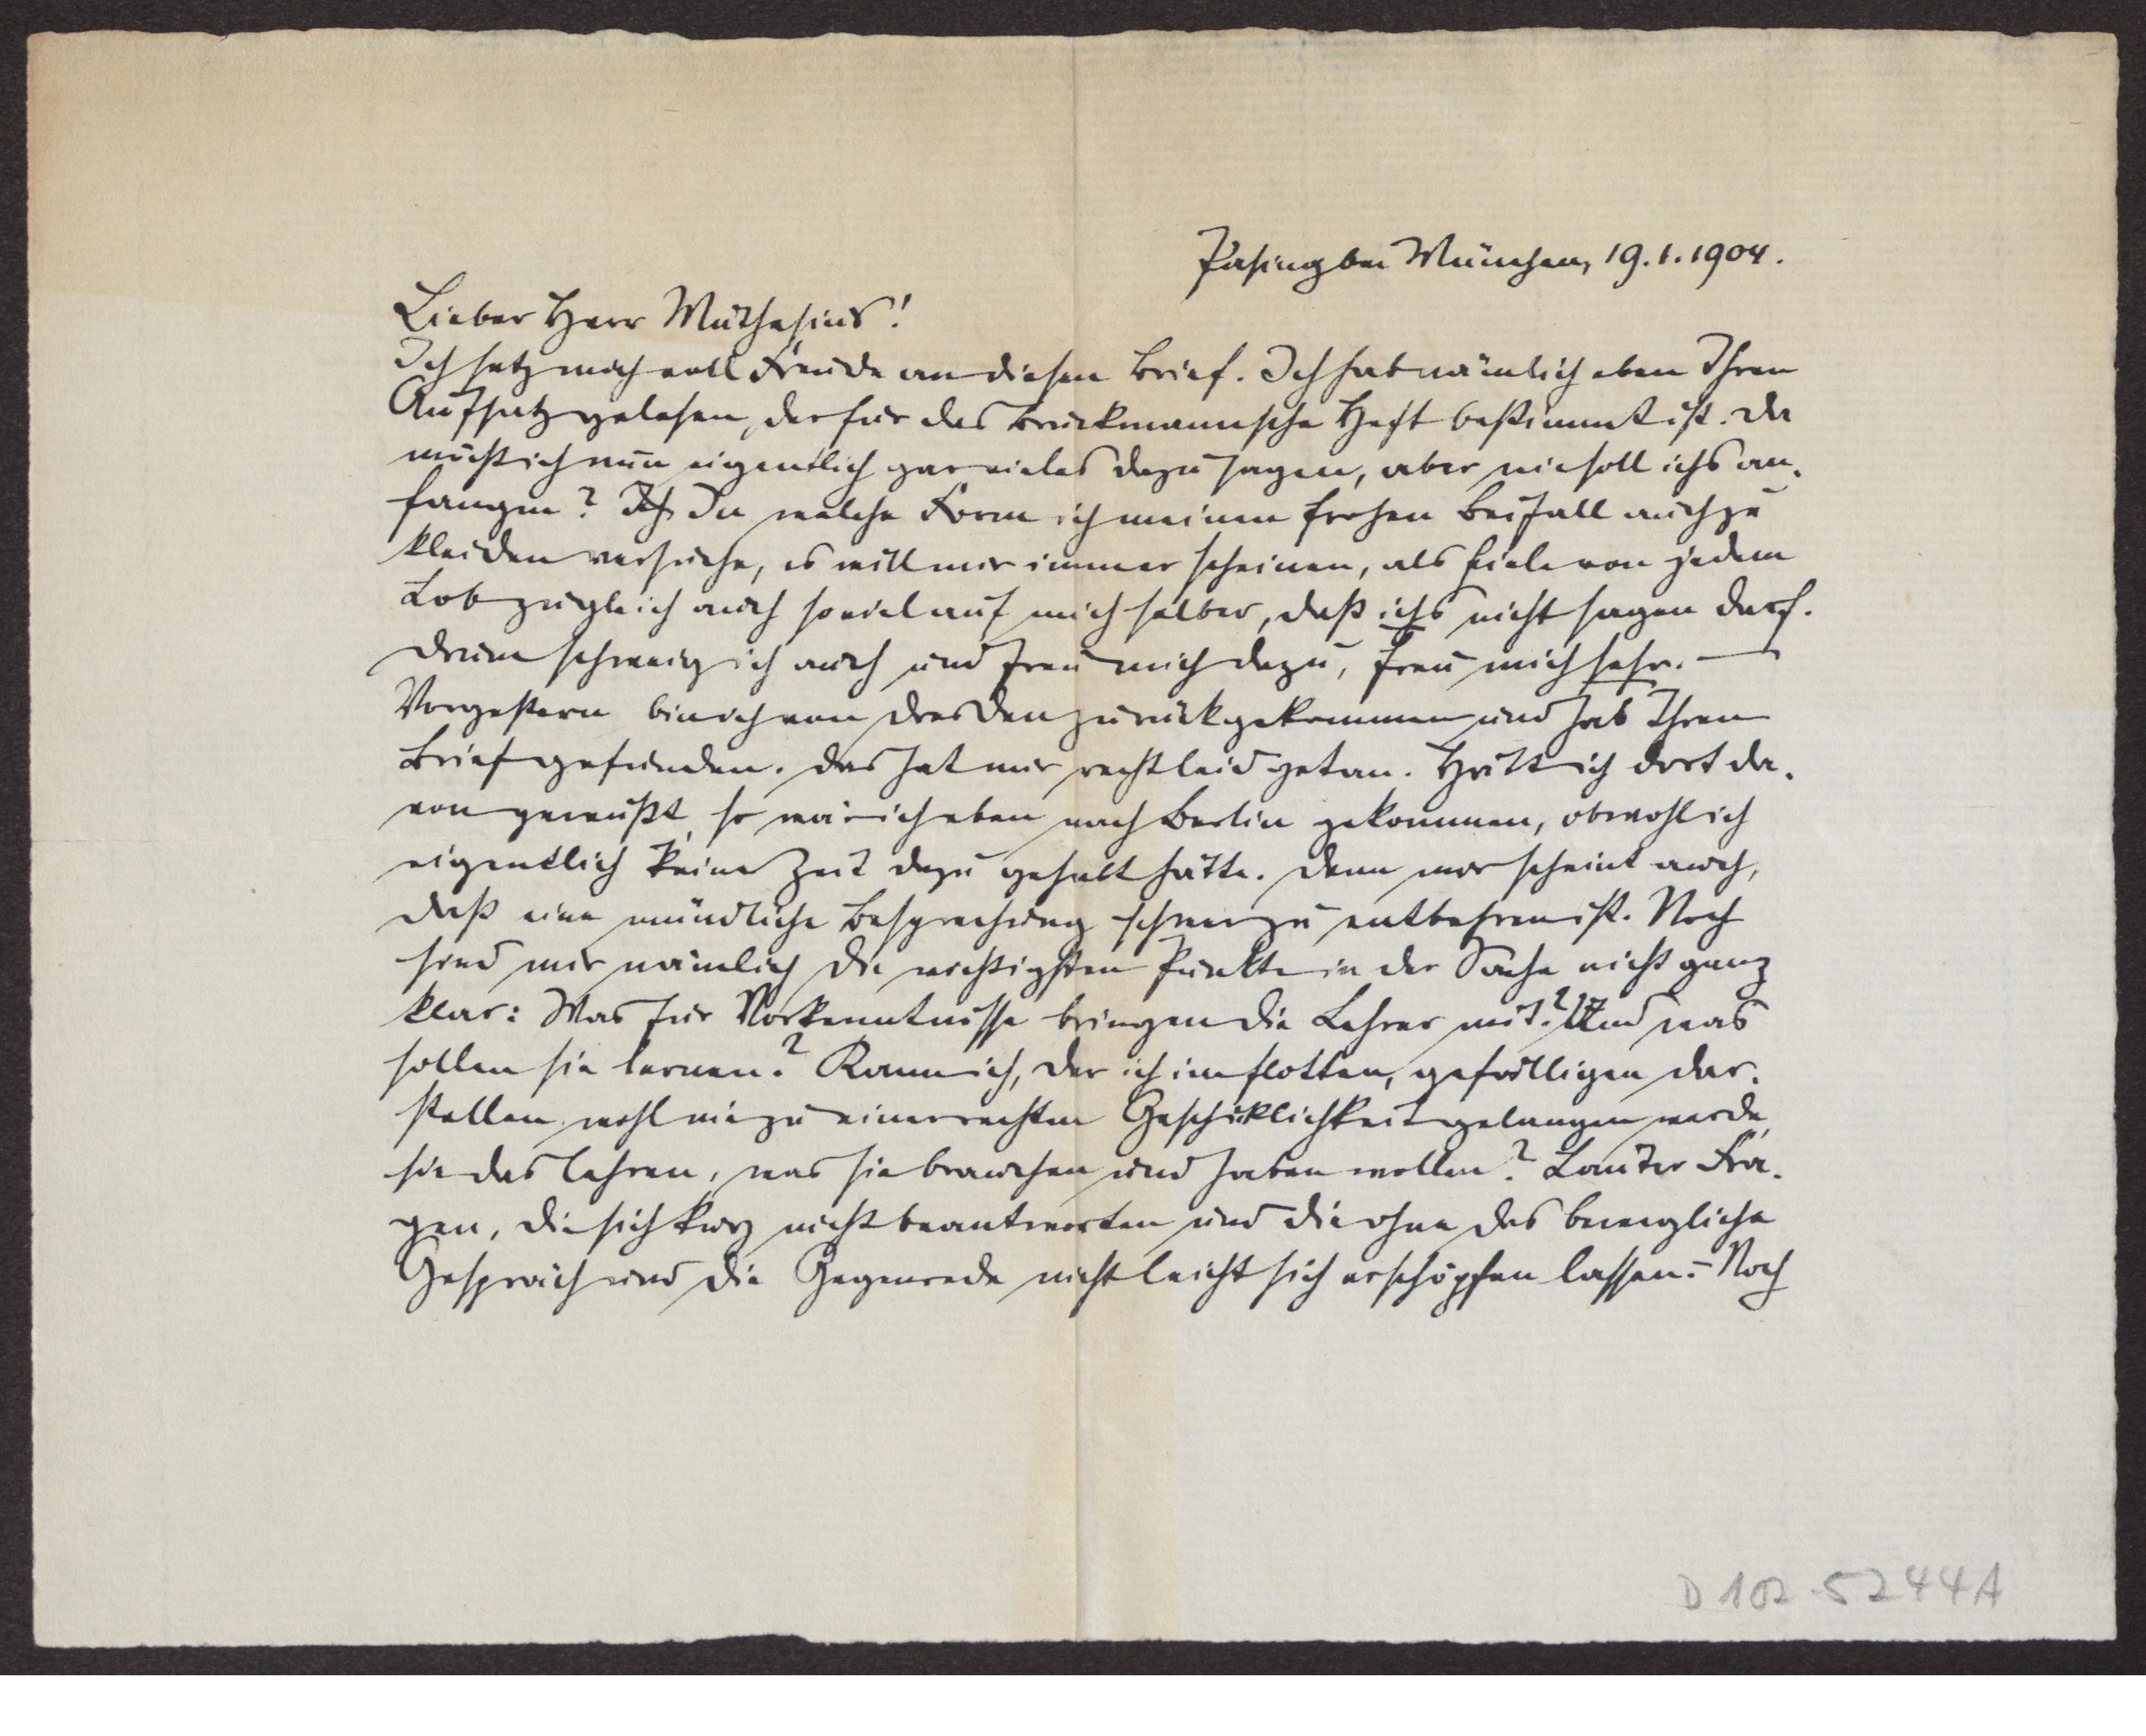 Pasing bei München, 19.1.1904.
Lieber Herr Muthesius!
Ich setz mich voll Freude an diesen Brief. Ich hab nämlich eben Ihren
Aufsatz gelesen, der für das Bruckmannsche Heft bestimmt ist. Da
müßt ich nun eigentlich gar vieles dazu sagen, aber wie soll ichs an-
fangen? In welche Form ich meinen frohen Beifall auch zu
kleiden versuche, es will mir immer scheinen, als fiele von jedem
Lob zugleich auch soviel auf mich selber, daß ichs nicht sagen darf.
Drum schweig ich auch und freu mich dazu, freu mich sehr. —
Vorgestern bin ich von Dresden zurückgekommen und hab Ihren
Brief gefunden. Das hat mir recht leid getan. Hätt ich dort da-
von gewußt, so wär ich eben nach Berlin gekommen, obwohl ich
eigentlich keine Zeit dazu gehabt hätte. Denn mir scheint auch,
daß eine mündliche Besprechung schwer zu entbehren ist. Noch
sind mir nämlich die wichtigsten Punkte in der Sache nicht ganz
klar: Was für Vorkenntnisse bringen die Lehrer mit? Und was
sollen sie lernen? Kann ich, der ich im flotten, gefälligen Dar-
stellen wohl nie zu einer rechten Geschicklichkeit gelangen werde,
sie das lehren, was sie brauchen und haben wollen? Lauter Fra-
gen, die sich kurz nicht beantworten und die ohne das bewegliche
Gespräch und die Gegenrede nicht leicht sich erschöpfen lassen. – Noch
D 102-5244A